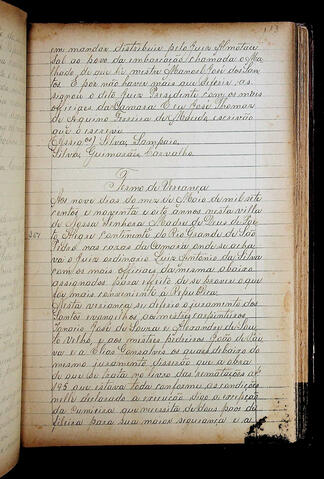 113
em mandar distribuir pelo Juiz Almotacé
sal ao povo da embarcação chamada o Ma
lhado de que he mestre Manoel José dos San
tos E por não haver mais que deferir as
signou o dito Juiz Presidente com os mais
officiaes da Camara E eu José Thomas
de Aquino Ferreira de Almeida escrivão
que o escrevi
Silva, Sampaio,
Silva, Guimarães Carvalho.
Termo de Vereança
Aos nove dias do mez de Maio de mil sete
centos e noventa e oito annos nesta villa
de Nossa Senhora Madre de Deus de Por
to Alegre Continente do Rio Grande de São
Pedro nas cazas da Camara onde se acha
va o juiz ordinario Luiz Antonio da Silva
com os mais officiaes da mesma abaixo
assignados para effeito de se prover o que
for mais conveniente á Republica
Nesta vereança se deferio o juramento dos
Santos evangelhos aos mestres carpinteiros
Ignacio José de Souza e Alexandre de Sou
to Velho, e aos mestres pedreiros João da Sil
va e a Elias Gonsalves os quaes debaixo do
mesmo juramento disserão que a obra
de que se trata no livro das rematações a f
195 que estava toda conforme as condições
nelle declarado a execução digo a excepção
da cumieira que necessita de dous paos de
para sua maior segurança e a